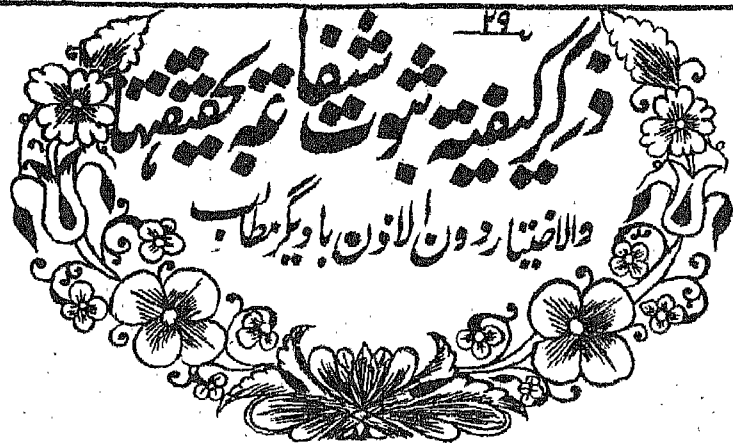 ۲۹
ذکر کیفیة ثبوت شفاعة بحقیقتها
والاختیار دون الاذن با دیگر مطالب